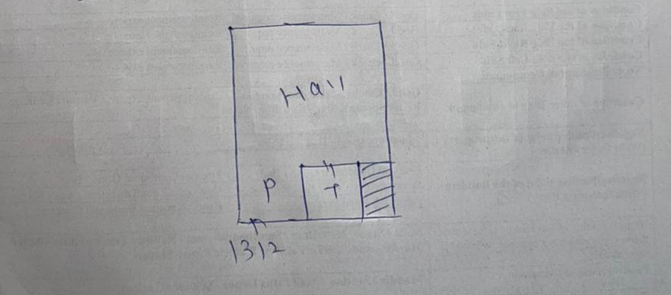 Hall
P
T
1312